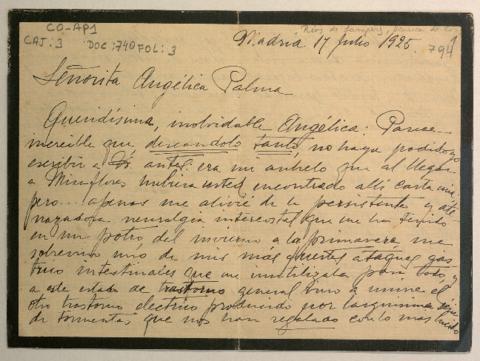 CO-AP1
CAJ: 3 DOC: 740 FOL: 3
794
Madrid 17 Julio 1925
Señorita Angélica Palma
Queridísima, inolvidable Angélica: Parece
increible que, deseandolo tanto, no haya podido yo
escribir a Vd. antes. era mi anhelo que al llegar
a Miraflores hubiera usted encontrado alli carta mia
pero... apenas me alivié de la persistente y ate
nazadora neuralgia intercostal que me ha tenido
en un potro del invierno a la primavera, me
sobrevino uno de mis mas fuertes ataques gas
tro intestinales que me inutilizala para todo y
a este estado de trastorno general vino a unirse el
otro trastorno electrico producido por larguisima serie
de tormentas que nos han regalado con lo mas